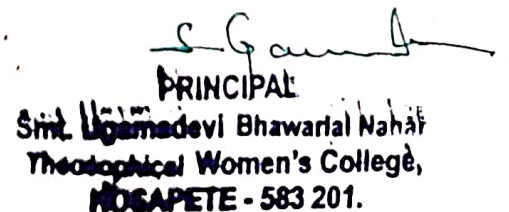 PRINCIPAL
Smt. Ugamadevi Bhawarlal Nahar
Theosophical Women's College,
HOSAPETE - 583 201.